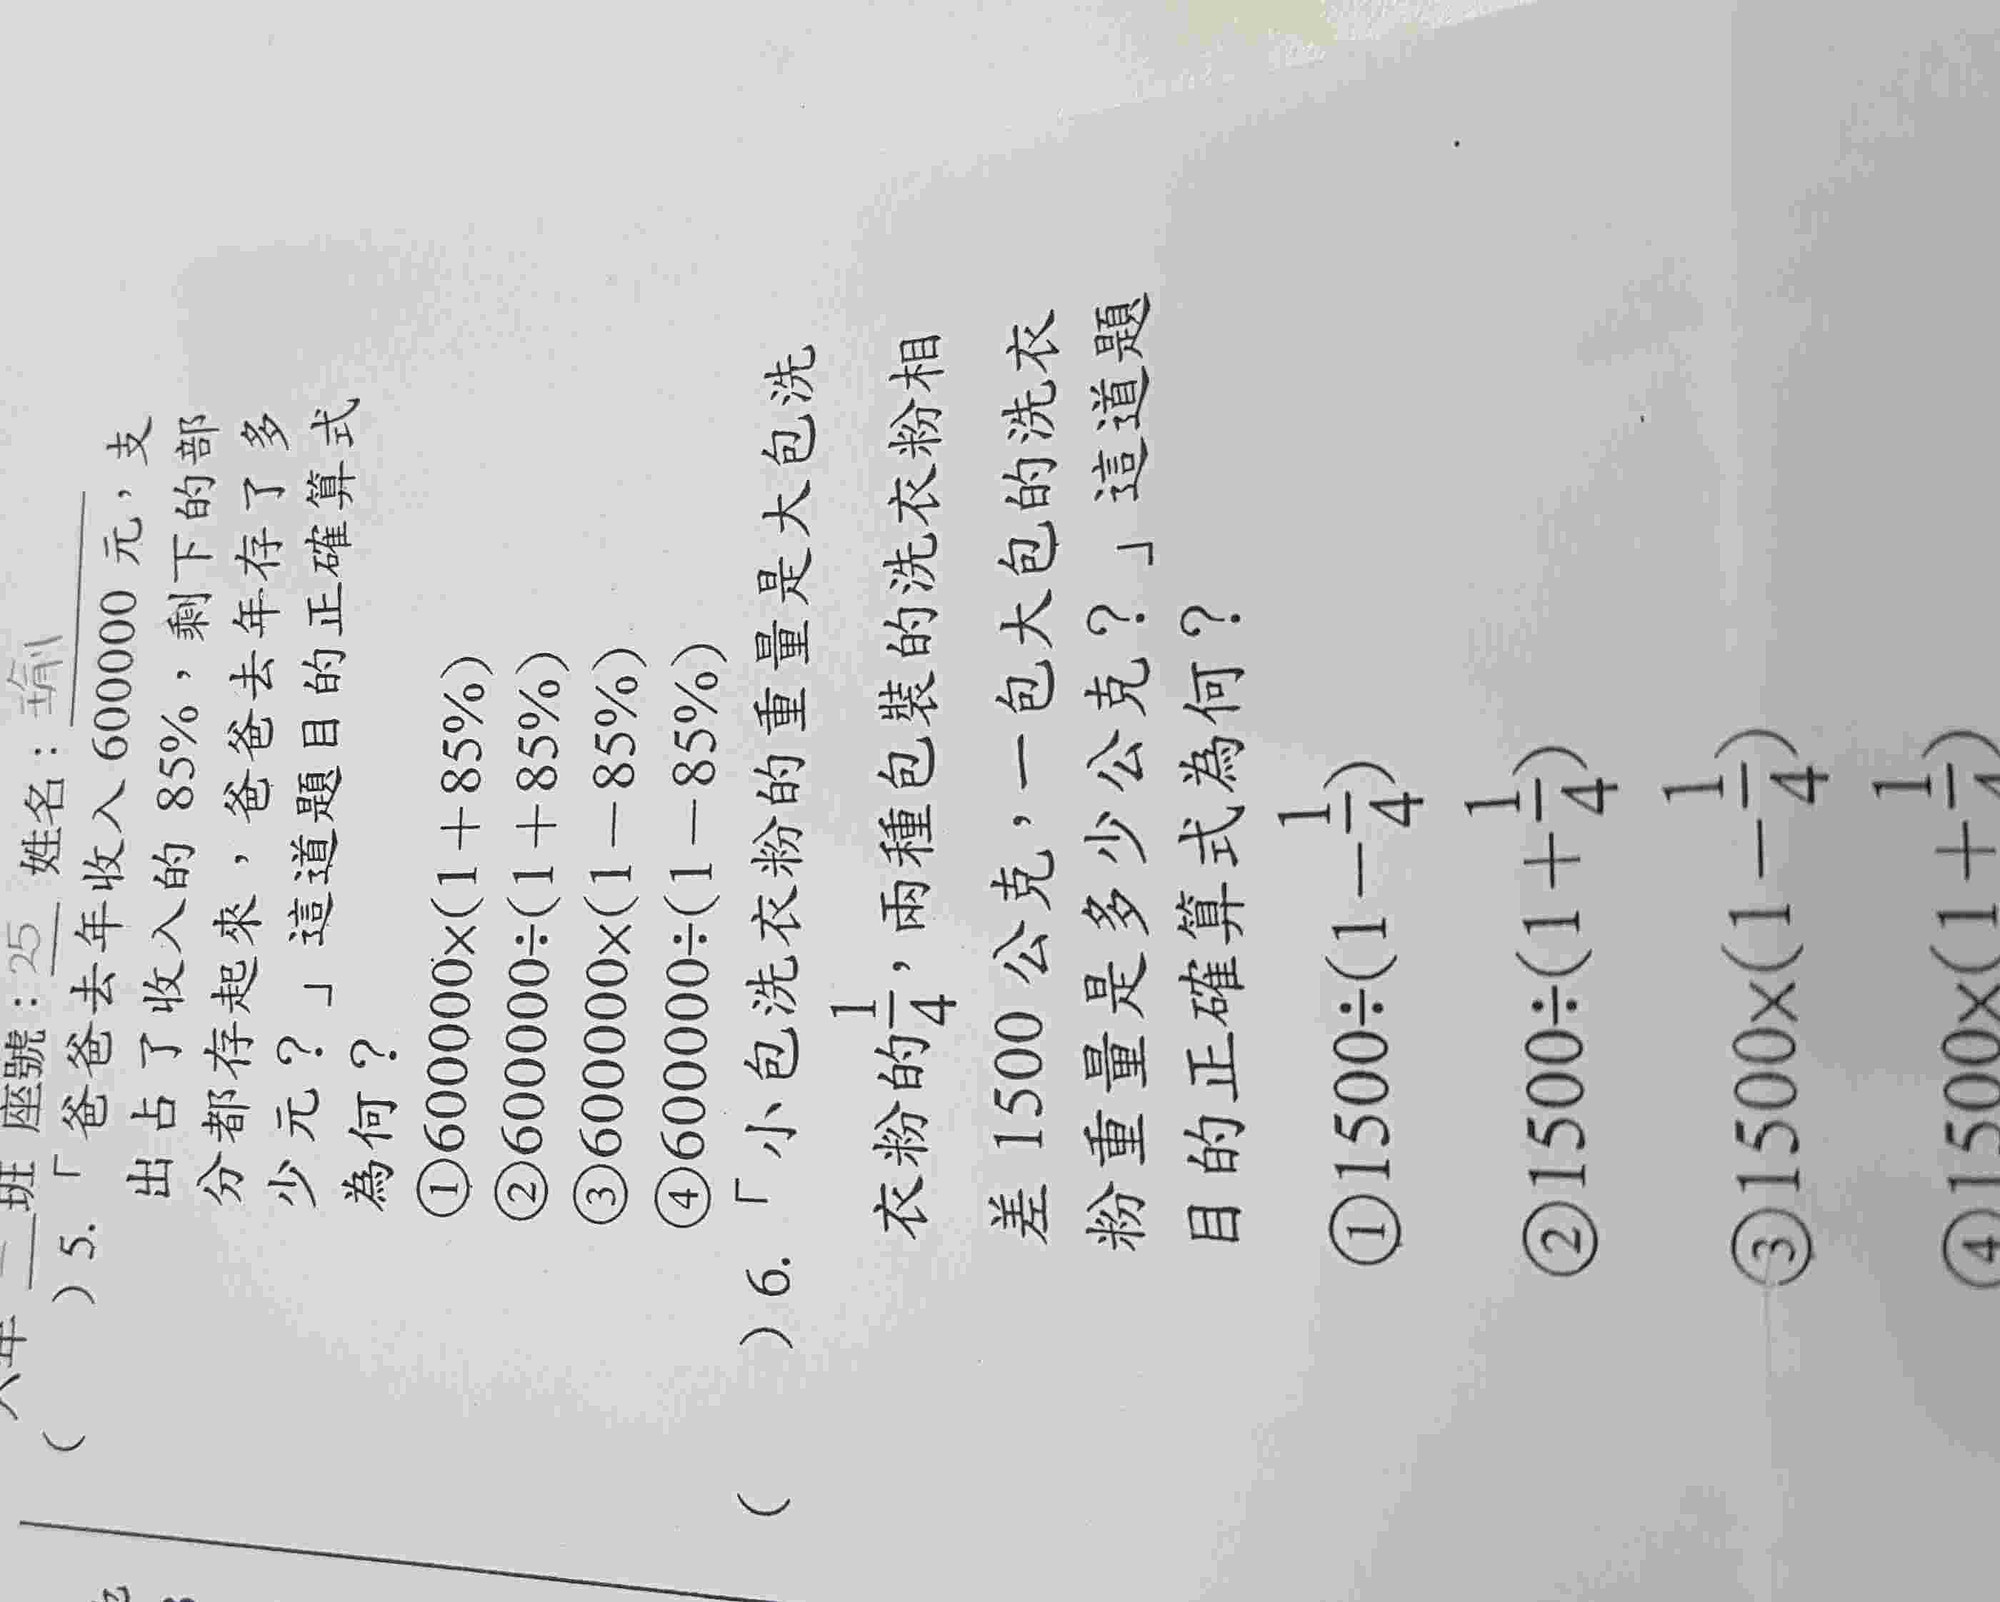 六年 二 班 座號：25 姓名：瑜
( )5.「爸爸去年收入 600000 元，支
出占了收入的 85%，剩下的部
分都存起來，爸爸去年存了多
少元？」這道題目的正確算式
為何？
①600000×(1＋85%)
②600000÷(1＋85%)
③600000×(1－85%)
④600000÷(1－85%)
( )6.「小包洗衣粉的重量是大包洗
衣粉的1/4，兩種包裝的洗衣粉相
差 1500 公克，一包大包的洗衣
粉重量是多少公克？」這道題
目的正確算式為何？
①1500÷(1－1/4)
②1500÷(1＋1/4)
③1500×(1－1/4)
④1500×(1＋1/4)